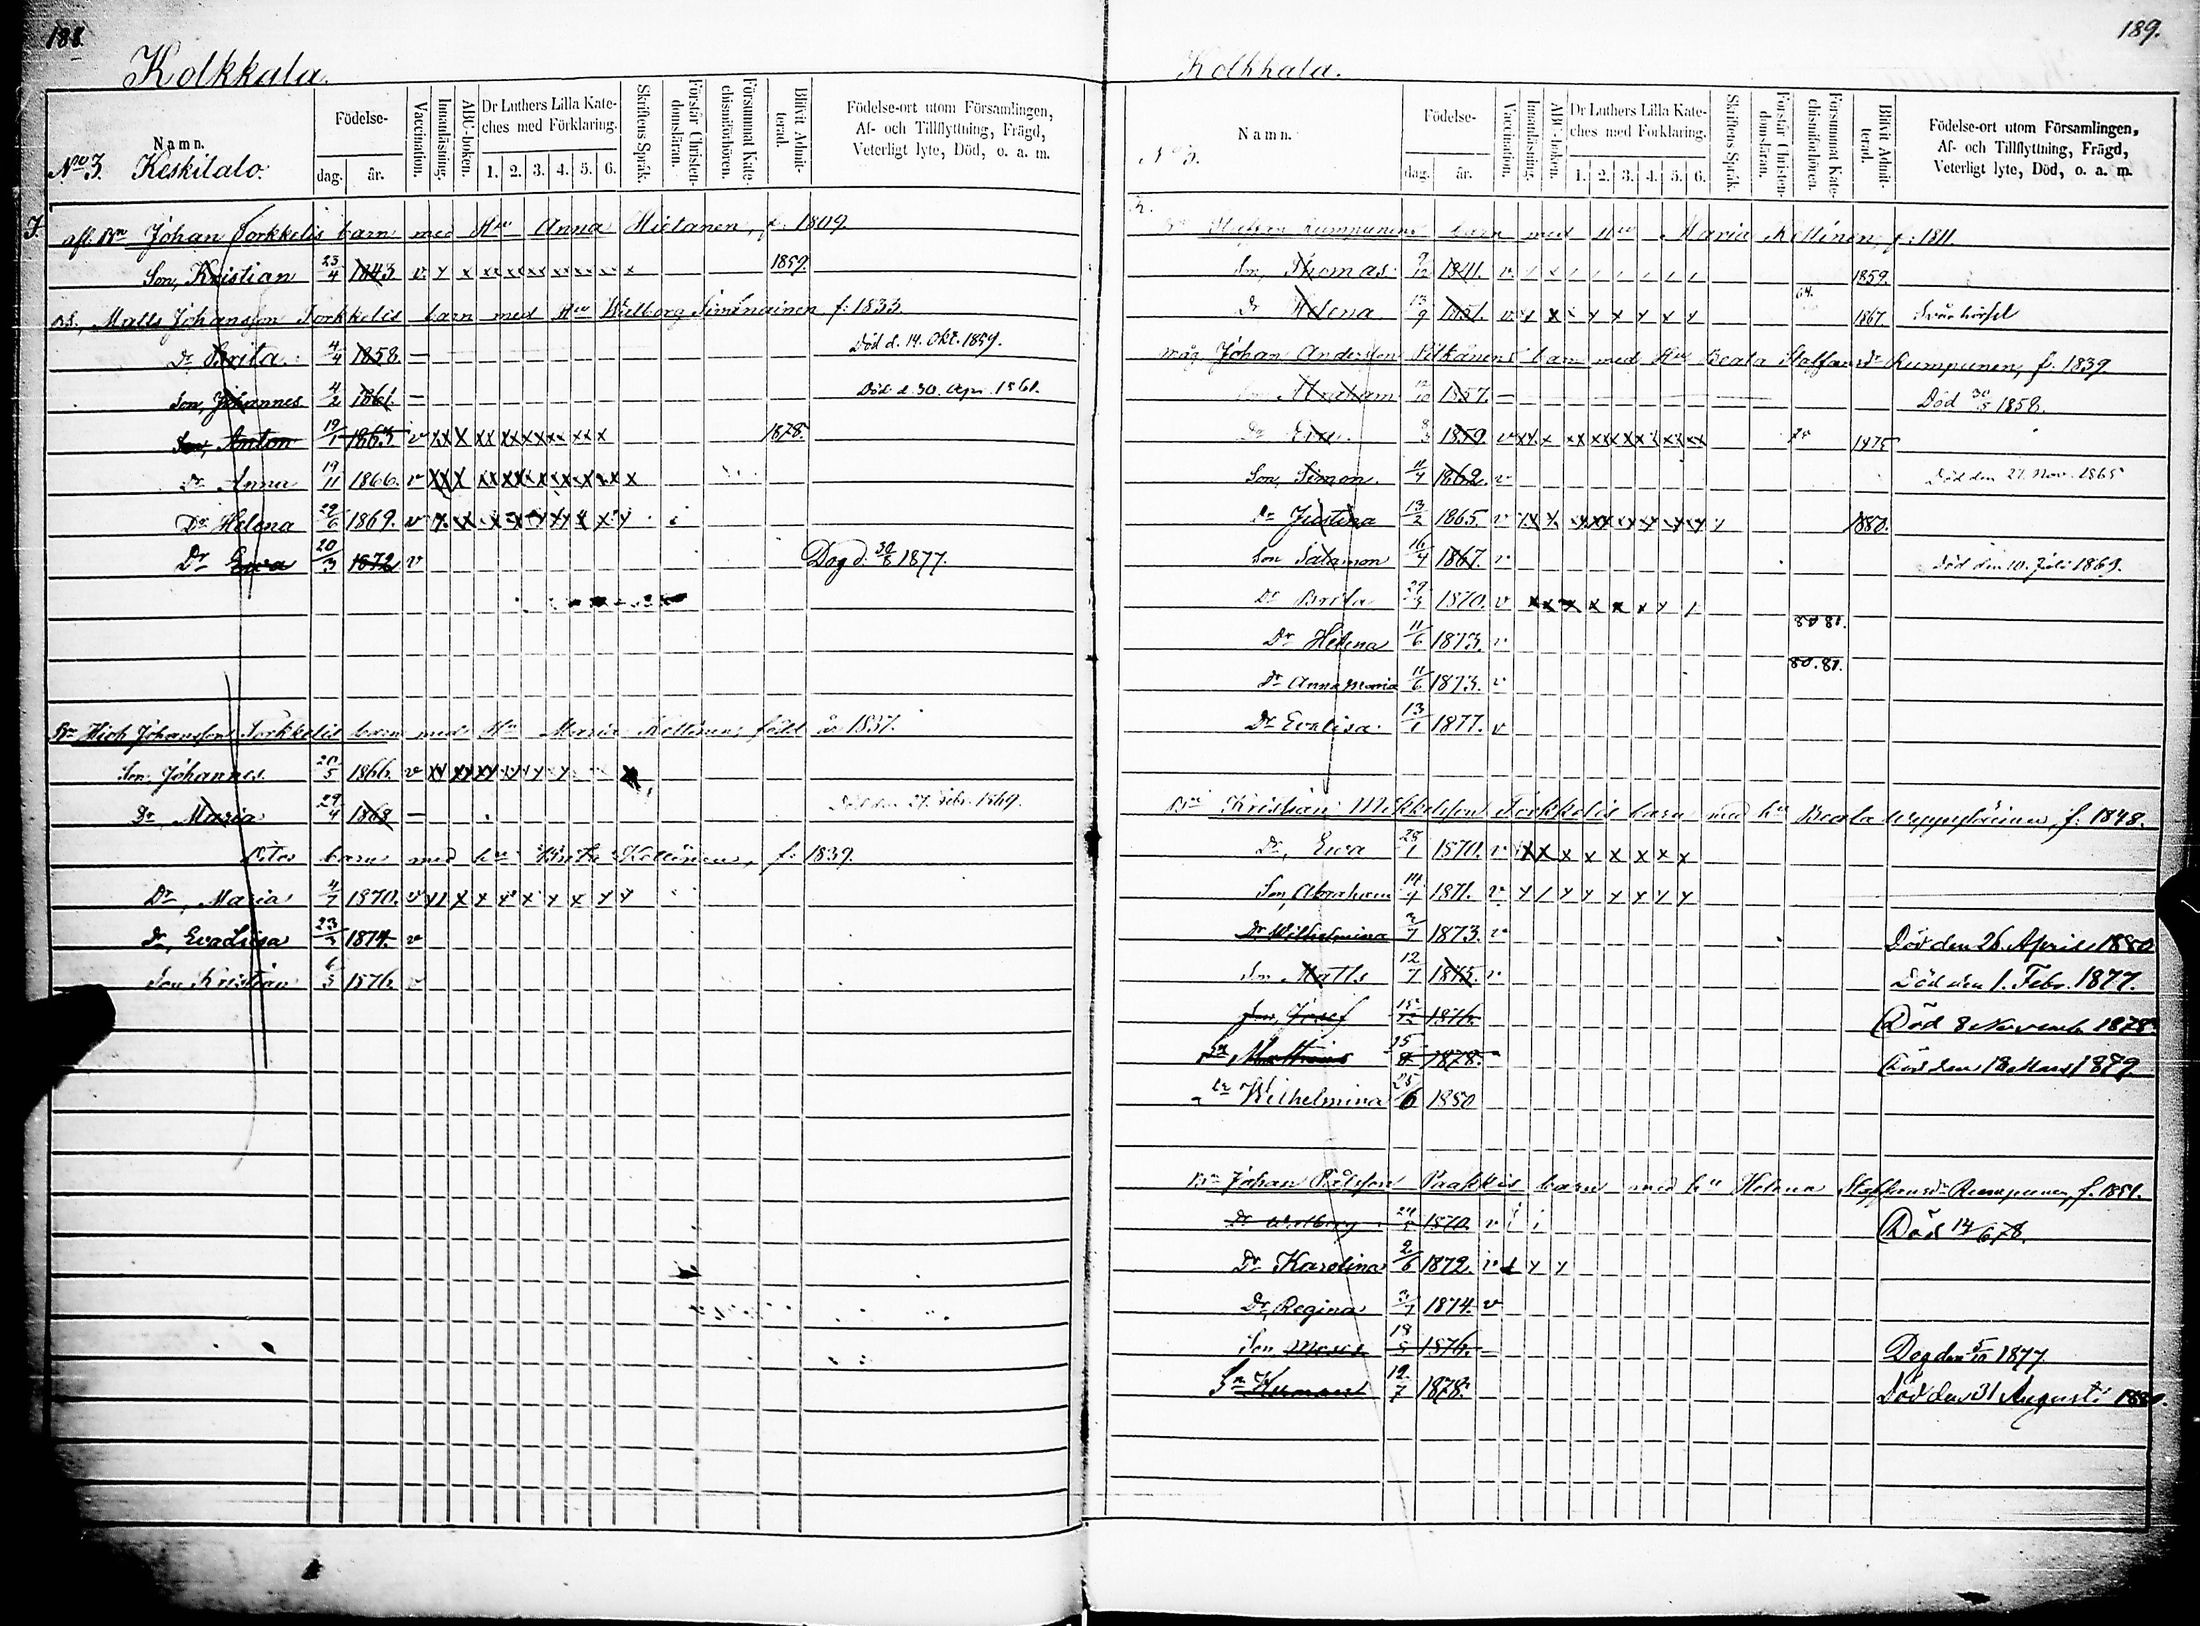 188.
Kolkkala.
Namn.
Födelse-
dag.
år.
Vaccination.
Innanläsning.
ABC-boken.
Dr Luthers Lilla Kate-
ches med Förklaring.
1. 2. 3. 4. 5. 6.
Skriftens Språk.
Förstår Christen-
domsläran.
Försummat Kate-
chismiförhören.
Blifvit Admit-
terad.
Födelse-ort utom Församlingen,
Af- och Tillflyttning, Frägd,
Veterligt lyte, Död, o. a. m.
No 3. Keskitalo.
afl. Bn Johan Torkkelis barn med Hu Anna Hietanen, f. 1809.
Son, Kristian 23/4 1843 v 1859.
Matts Johansson Torkkelis barn med Hu Walborg f: 1833.
Dr Brita 4/4 1858. — Död d. 14. Okt. 1859.
Son, Johannes 4/2 1861. — Död d. 30. Apr. 1861.
Son, Anton 19/1 1863 v 1878.
Dr Anna 19/11 1866. v
Dr Helena 29/6 1869. v
Dr Ewa 20/3 1872 v Dog d. 30/8 1877.
Bn Hich Johansson Torkkelis barn med Hu Maria Kettinen, född år 1837.
Son Johannes 20/5 1866 v
Dr Maria 29/4 1868 — Död den 27. Febr. 1869.
barn med hu Kettinen, f. 1839.
Dr, Maria 4/7 1870. v
Dr, Eva Lisa 23/3 1874. v
Son Kristian 6/5 1876. v
189.
Kolkkala.
Namn.
Födelse-
dag.
år.
Vaccination.
Innanläsning.
ABC-boken.
Dr Luthers Lilla Kate-
ches med Förklaring.
1. 2. 3. 4. 5. 6.
Skriftens Språk.
Förstår Christen-
domsläran.
Försummat Kate-
chismiförhören.
Blifvit Admit-
terad.
Födelse-ort utom Församlingen,
Af- och Tillflyttning, Frägd,
Veterligt lyte, Död, o. a. m.
No 3.
Staffan Rumpunens barn med Hu Maria Kettinen, f: 1811.
Son, Thomas 9/12 1841. v 1859.
Dr Helena 13/9 1851. v 64. 1867. Svår hörsel
måg Johan Andersson Pitkänens barn med Hu Beata Staffansdr Rumpunen, f. 1839.
Abraham 12/10 1857. — Död 30/5 1858.
Dr Eva 1859. v 1875
Son, Simon 11/4 1862. v Död den 27. Nov. 1865
Dr Justina 13/2 1865. v 1880.
Son Salamon 16/4 1867. v Död den 10. Juli 1869.
Dr Brita 29/3 1870. v
Dr Helena 11/6 1873. v 80 81.
Dr Anna Maria 11/6 1873. v 80. 81.
Dr Eva Lisa 13/1 1877. v
Kristian Mikkelsson Torkkelis barn med hu Beata f. 1848.
Dr, Ewa 28/1 1870. v
Son, Abraham 14/4 1871. v
Dr Wilhelmina 3/7 1873. v Död den 26. April 1880
Son Matts 12/7 1875. v Död den 1. Febr. 1877.
Son, Josef 15/12 1876. Död 8 Novemb 1878.
Sn Matthias 25 1878. Död den 18 Mars 1879.
Dr Wilhelmina 25/6 1880
Bn Johan Pålsson Paakkis barn med hu Helena Staffansdr Rumpunen, f. 1851.
Dr Walborg 1870 v Död 14/6 78.
Dr Karolina 2/6 1872. v
Dr, Regina 3/7 1874. v
Son Moses 18/5 1876. — Dog den 5/10 1877
Sn Herman 12/7 1878. Död den 31 Augusti 1880.